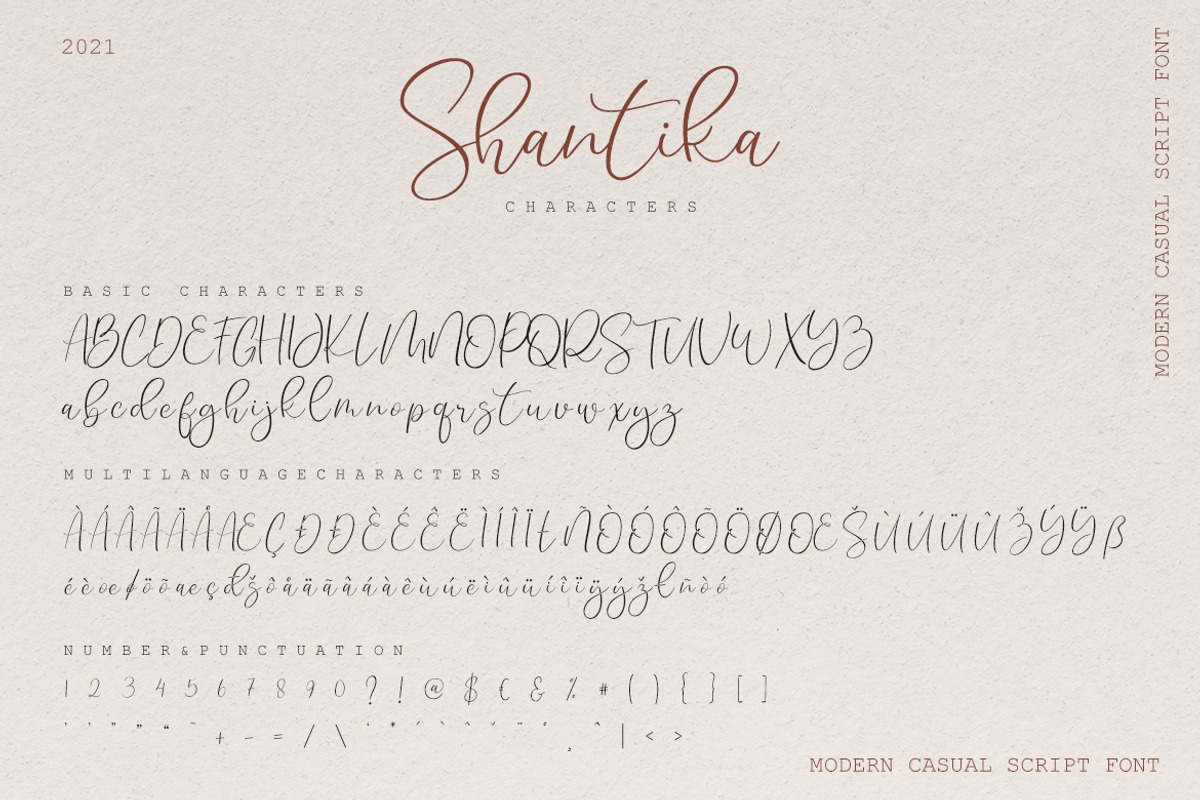 2021
Shantika
CHARACTERS
MODERN CASUAL SCRIPT FONT
BASIC CHARACTERS
ABCDEFGHIJKLMNOPQRSTUVWXYZ
abcdefghijklmnopqrstuvwxyz
MULTILANGUAGECHARACTERS
ÀÁÂÃÄÅÆÇÐĐÈÉÊËÌÍÎÏŁÑÒÓÔÕÖØŒŠÙÚÜÛŽÝŸß
éèœøöõæçđšôåäãâáàêùúëìûüíîïÿýžłñòó
NUMBER&PUNCTUATION
1 2 3 4 5 6 7 8 9 0 ? ! @ $ € & % # ( ) { } [ ]
+ - = / \ | < >
MODERN CASUAL SCRIPT FONT